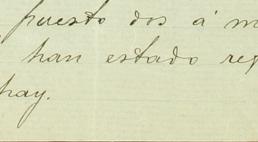 puesto dos á m
han estado re
hay.